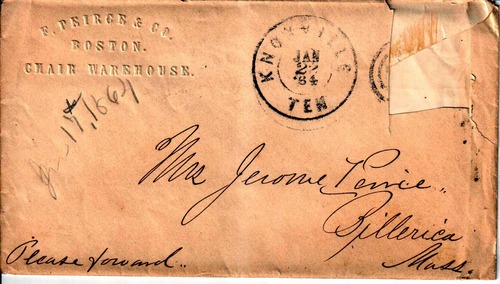 F. PEIRCE & CO.
BOSTON.
CHAIR WAREHOUSE.
KNOXVILLE
JAN
22
64
TEN
17, 1864
Mrs Jerome
Billerica
Mass.
Please forward..